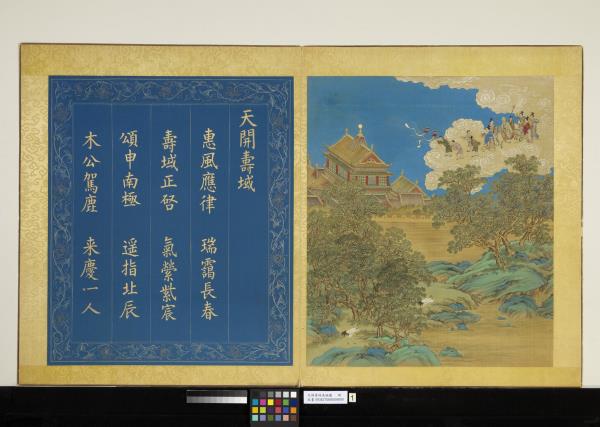 天開壽域
惠風應律　瑞靄長春
壽域正啓　氣縈紫宸
頌申南極　遥指北辰
木公駕鹿　来慶一人
1